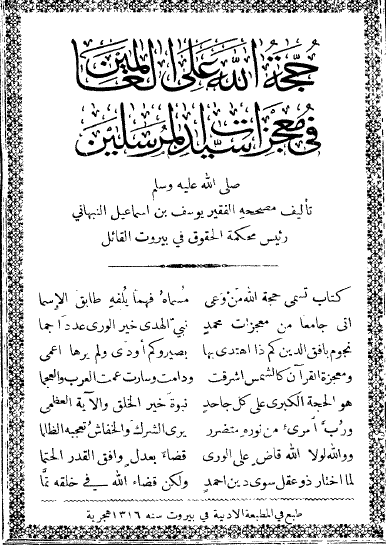 حجة الله على العالمين
في معجزات سيد المرسلين
صلى الله عليه وسلم
تأليف مصححه الفقير يوسف بن اسماعيل النبهاني
رئيس محكمة الحقوق في بيروت القائل
كتاب تسمى حجة الله من وعى مسماه فهما يلفه طابق الاسما
اتى جامعا من معجزات محمد نبي الهدى خير الورى عددا جما
نجوم بافق الدين كم ذا اهتدى بها بصير وكم أودى ولم يرها اعمى
ومعجزة القرآن كالشمس اشرقت ودامت وسارت عمت العرب والعجما
هو الحجة الكبرى على كل جاحد نبوة خير الخلق والآية العظمى
ورب امرئ من نوره متضرر يرى الشرك والخفاش تعجبه الظلما
ووالله لولا الله قاض على الورى قضاء بعدل وافق القدر الحتما
لما اختار ذو عقل سوى دين احمد ولكن قضاء الله في خلقه تما
طبع في المطبعة الادبية في بيروت سنه ١٣١٦ هجرية